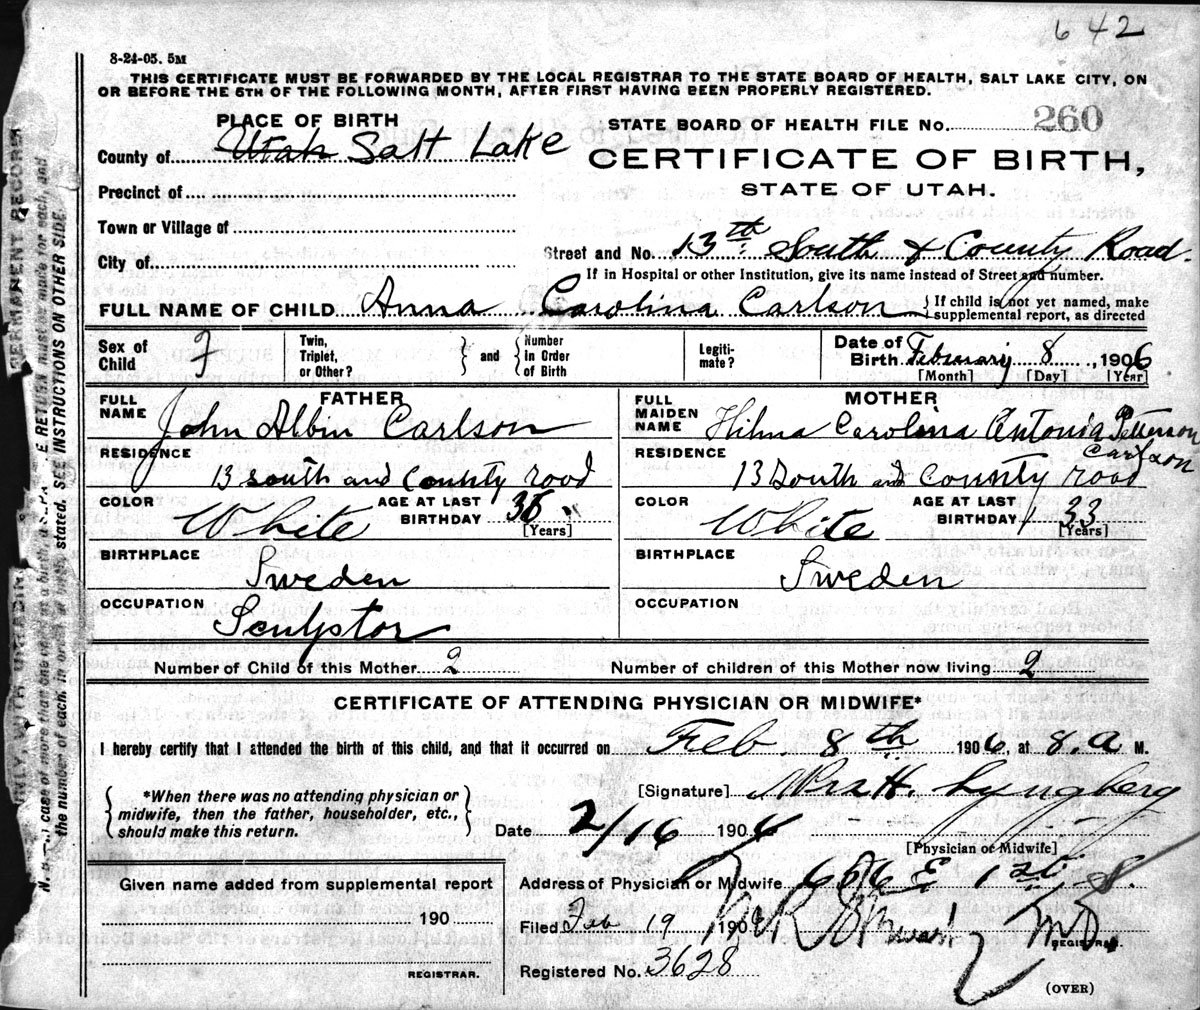 642
8-24-05. 5M
THIS CERTIFICATE MUST BE FORWARDED BY THE LOCAL REGISTRAR TO THE STATE BOARD OF HEALTH, SALT LAKE CITY, ON
OR BEFORE THE 5TH OF THE FOLLOWING MONTH, AFTER FIRST HAVING BEEN PROPERLY REGISTERED.
PLACE OF BIRTH
STATE BOARD OF HEALTH FILE No. 260
County of Utah Salt Lake
CERTIFICATE OF BIRTH,
STATE OF UTAH.
Precinct of
Town or Village of
City of
Street and No. 13th South & County Road.
If in Hospital or other Institution, give its name instead of Street and number.
FULL NAME OF CHILD Anna Carolina Carlson
If child is not yet named, make
supplemental report, as directed
Sex of
Child
Twin,
Triplet,
or Other?
and
Number
in Order
of Birth
Legiti-
mate?
Date of
Birth February 8, 1906
[Month] [Day] [Year]
FATHER
FULL
NAME
John Albin Carlson
RESIDENCE
13 South and County road
COLOR
White
AGE AT LAST
BIRTHDAY
[Years]
BIRTHPLACE
Sweden
OCCUPATION
Sculptor
MOTHER
FULL
MAIDEN
NAME
Hilma Carolina Antonia Petterson
Carlson
RESIDENCE
13 South and County road
COLOR
White
AGE AT LAST
BIRTHDAY 33
[Years]
BIRTHPLACE
Sweden
OCCUPATION
Number of Child of this Mother 2
Number of children of this Mother now living 2
CERTIFICATE OF ATTENDING PHYSICIAN OR MIDWIFE*
I hereby certify that I attended the birth of this child, and that it occurred on Feb. 8th 1906, at 8.a M.
*When there was no attending physician or
midwife, then the father, householder, etc.,
should make this return.
[Signature] Mrs H. Lyngberg
Date 2/16 1906
[Physician or Midwife]
Given name added from supplemental report
190
REGISTRAR.
Address of Physician or Midwife E 1st S.
Filed Feb 19 190 M.D.
REGISTRAR.
Registered No. 3628
(OVER)
PERMANENT RECORD
stated. SEE INSTRUCTIONS ON OTHER SIDE.